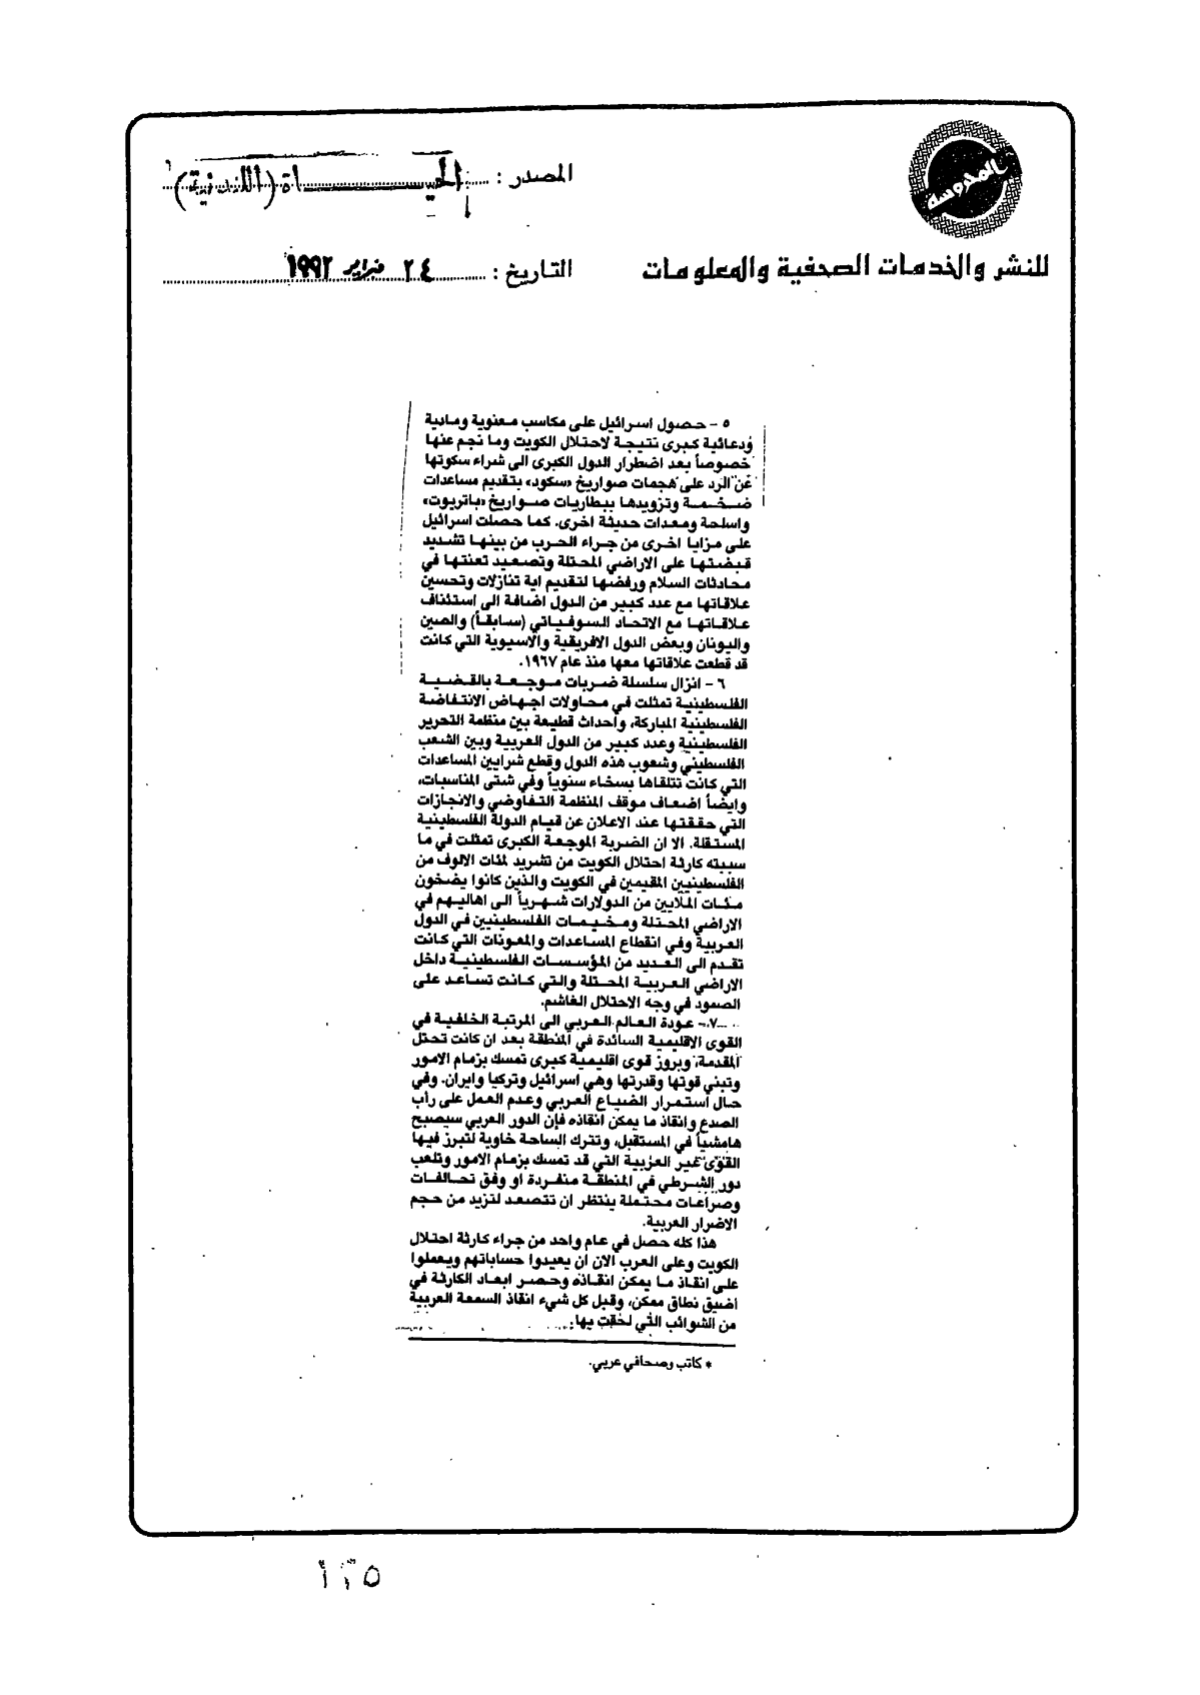 المدوسة
للنشر والخدمات الصحفية والمعلومات
المصدر : الحيــــاة (اللندنية)
التاريخ : ٢٤ فبراير ١٩٩٢
٥ - حصول اسرائيل على مكاسب معنوية ومادية
ودعائية كبرى نتيجة لاحتلال الكويت وما نجم عنها
خصوصاً بعد اضطرار الدول الكبرى الى شراء سكوتها
عن الرد على هجمات صواريخ «سكود» بتقديم مساعدات
ضخمة وتزويدها ببطاريات صواريخ «باتريوت»
واسلحة ومعدات حديثة اخرى. كما حصلت اسرائيل
على مزايا اخرى من جراء الحرب من بينها تشديد
قبضتها على الاراضي المحتلة وتصعيد تعنتها في
محادثات السلام ورفضها لتقديم اية تنازلات وتحسين
علاقاتها مع عدد كبير من الدول اضافة الى استئناف
علاقاتها مع الاتحاد السوفياتي (سابقاً) والصين
واليونان وبعض الدول الافريقية والاسيوية التي كانت
قد قطعت علاقاتها معها منذ عام ١٩٦٧.
٦ - انزال سلسلة ضربات موجعة بالقضية
الفلسطينية تمثلت في محاولات اجهاض الانتفاضة
الفلسطينية المباركة، واحداث قطيعة بين منظمة التحرير
الفلسطينية وعدد كبير من الدول العربية وبين الشعب
الفلسطيني وشعوب هذه الدول وقطع شرايين المساعدات
التي كانت تتلقاها بسخاء سنوياً وفي شتى المناسبات،
وايضاً اضعاف موقف المنظمة التفاوضي والانجازات
التي حققتها عند الاعلان عن قيام الدولة الفلسطينية
المستقلة. الا ان الضربة الموجعة الكبرى تمثلت في ما
سببته كارثة احتلال الكويت من تشريد لمئات الالوف من
الفلسطينيين المقيمين في الكويت والذين كانوا يضخون
مئات الملايين من الدولارات شهرياً الى اهاليهم في
الاراضي المحتلة ومخيمات الفلسطينيين في الدول
العربية وفي انقطاع المساعدات والمعونات التي كانت
تقدم الى العديد من المؤسسات الفلسطينية داخل
الاراضي العربية المحتلة والتي كانت تساعد على
الصمود في وجه الاحتلال الغاشم.
٧ - عودة العالم العربي الى المرتبة الخلفية في
القوى الاقليمية السائدة في المنطقة بعد ان كانت تحتل
المقدمة، وبروز قوى اقليمية كبرى تمسك بزمام الامور
وتبني قوتها وقدرتها وهي اسرائيل وتركيا وايران. وفي
حال استمرار الضياع العربي وعدم العمل على رأب
الصدع وانقاذ ما يمكن انقاذه فإن الدور العربي سيصبح
هامشياً في المستقبل، وتترك الساحة خاوية لتبرز فيها
القوى غير العربية التي قد تمسك بزمام الامور وتلعب
دور الشرطي في المنطقة منفردة او وفق تحالفات
وصراعات محتملة ينتظر ان تتصعد لتزيد من حجم
الاضرار العربية.
هذا كله حصل في عام واحد من جراء كارثة احتلال
الكويت وعلى العرب الان ان يعيدوا حساباتهم ويعملوا
على انقاذ ما يمكن انقاذه وحصر ابعاد الكارثة في
اضيق نطاق ممكن، وقبل كل شيء انقاذ السمعة العربية
من الشوائب التي لحقت بها.
* كاتب وصحافي عربي.
١٣٥